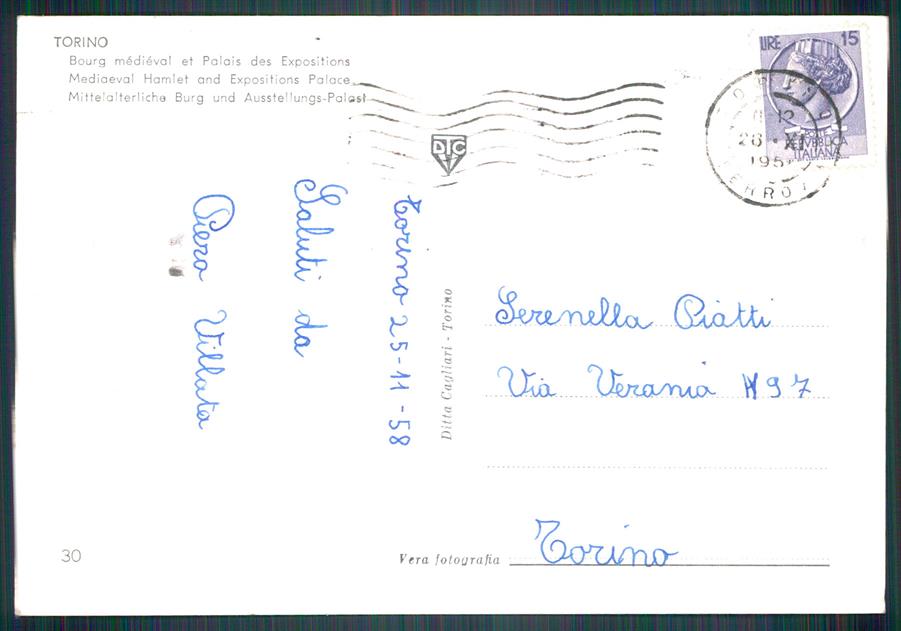 TORINO
Bourg médiéval et Palais des Expositions
Mediaeval Hamlet and Expositions Palace
Mittelalterliche Burg und Ausstellungs-Palast
DTC
LIRE 15
REPVBBLICA
ITALIANA
12
26 · XI
195
Torino 25-11-58
Saluti da
Piera Villata
Ditta Cagliari - Torino
Serenella Piatti
Via Verania N 97
Torino
30
Vera fotografia